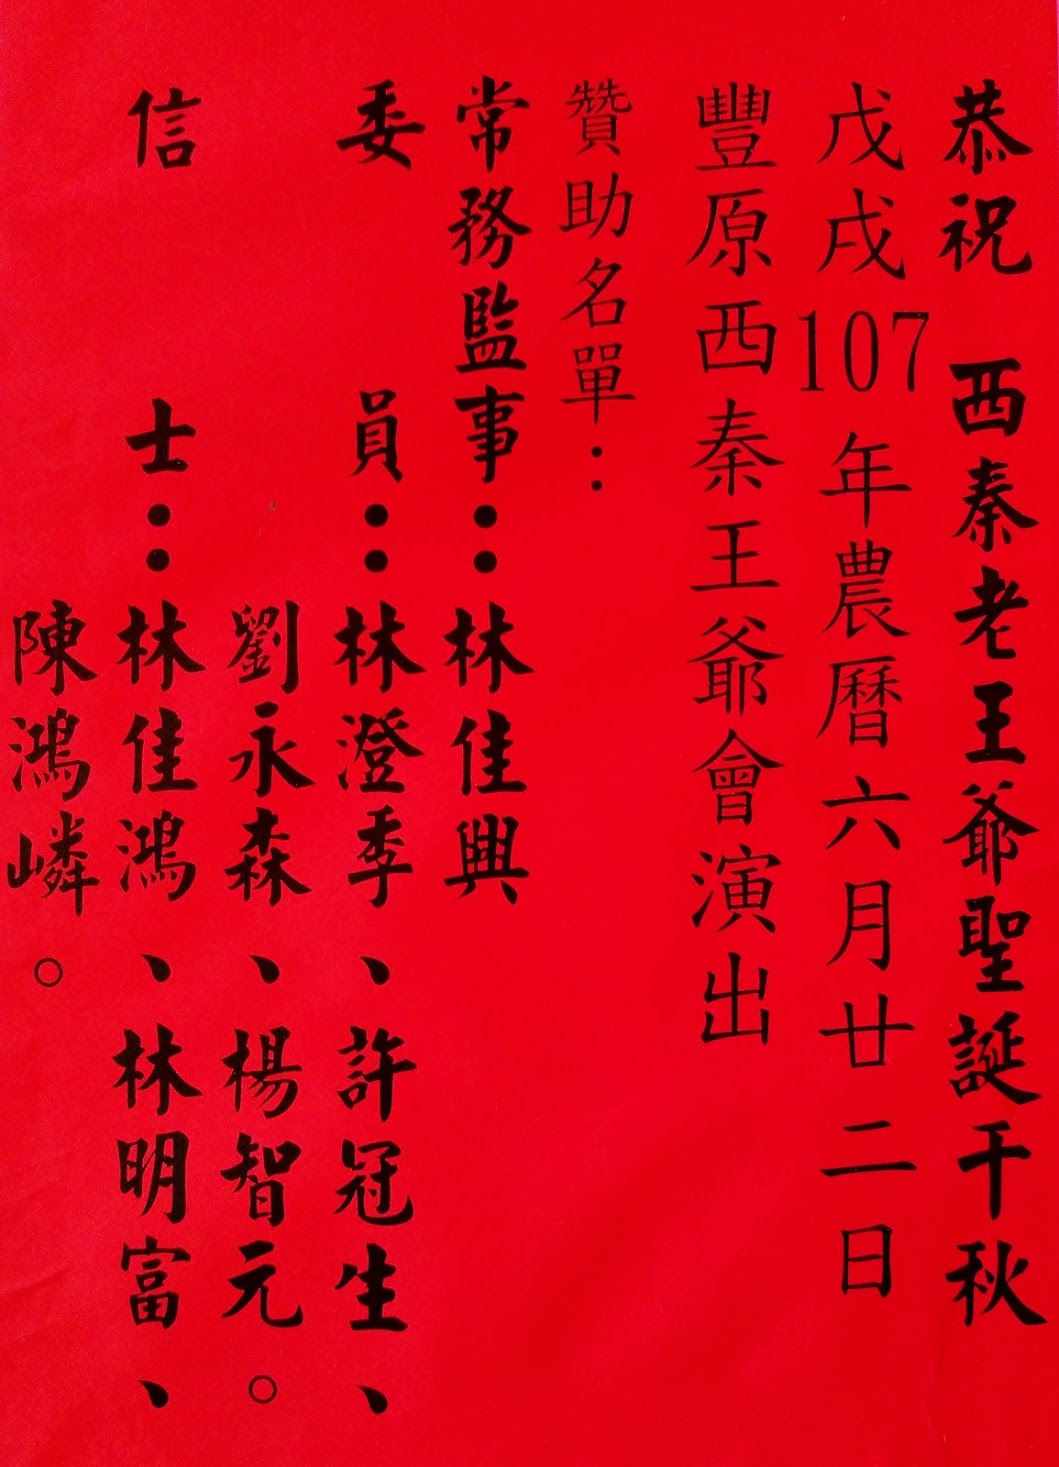 恭祝 西秦老王爺聖誕千秋
戊戌107年農曆六月廿二日
豐原西秦王爺會演出
贊助名單：
常務監事：林佳興
委員：林澄季、許冠生、
劉永森、楊智元。
信士：林佳鴻、林明富、
陳鴻嶙。